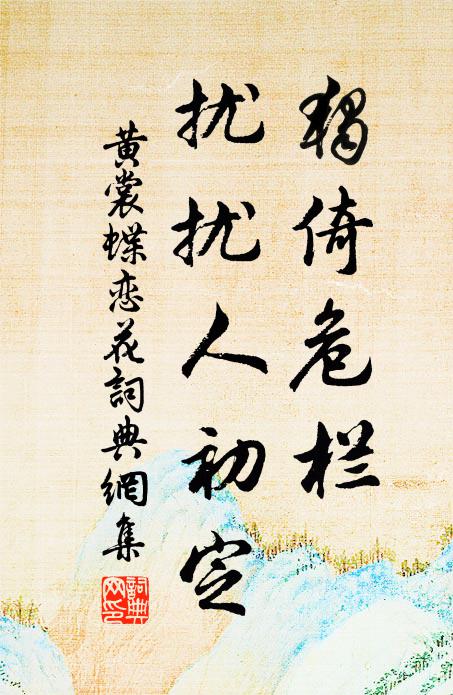 獨倚危栏
扰扰人初定
黄裳蝶恋花詞典網集
詞典網印